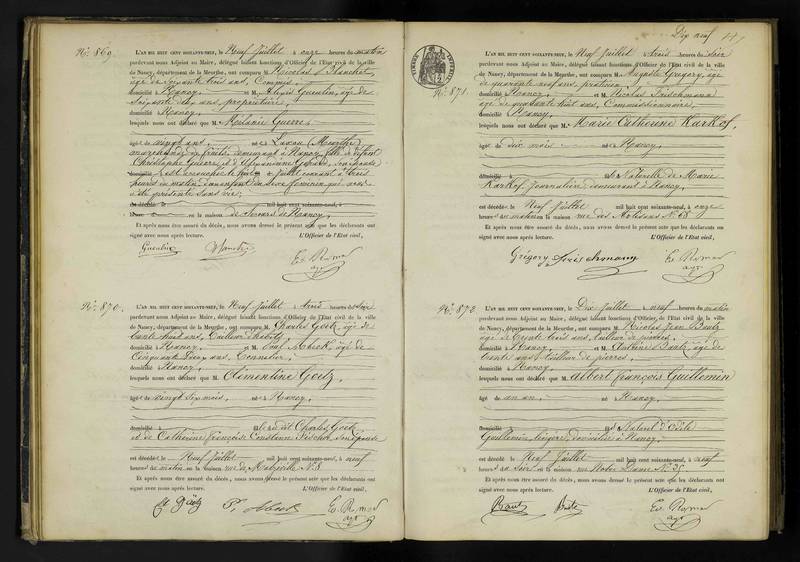 N.º 869.
L'AN MIL HUIT CENT SOIXANTE-NEUF, le Neuf Juillet à onze heures du matin
pardevant nous Adjoint au Maire, délégué faisant fonctions d'Officier de l'Etat civil de la ville
de Nancy, département de la Meurthe, ont comparu M. Nicolas Blanchet,
âgé de Soixante trois ans, Commis,
domicilié à Nancy, et M. Guentin, âgé de
Soixante ans, propriétaire,
domicilié à Nancy,
lesquels nous ont déclaré que M. Mélanie Guerre,
âgée de vingt ans, née à (Meurthe)
demeurant à Nancy, fille de défunt
Christophe Guerre, et d'
est accouchée le huit Juillet courant à trois
heures du matin, d'un enfant du sexe féminin, qui nous
a été présenté sans vie,
est décédé le mil huit cent soixante-neuf, à
heure en la maison de Secours de Nancy,
Et après nous être assuré du décès, nous avons dressé le présent acte que les déclarants ont
signé avec nous après lecture. L'Officier de l'Etat civil,
N.º 870.
L'AN MIL HUIT CENT SOIXANTE-NEUF, le Neuf Juillet à trois heures du soir
pardevant nous Adjoint au Maire, délégué faisant fonctions d'Officier de l'Etat civil de la ville
de Nancy, département de la Meurthe, ont comparu M. Charles Goetz, âgé de
trente huit ans,
domicilié à Nancy, et M. Paul âgé de
Cinquante Deux ans, Tonnelier,
domicilié à Nancy,
lesquels nous ont déclaré que M. Clémentine Goetz,
âgée de vingt six mois, née à Nancy,
domiciliée à fille du dit Charles Goetz
et de Catherine Françoise Constance Fischer, son épouse
est décédée le Neuf Juillet mil huit cent soixante-neuf, à neuf
heures du matin en la maison rue de Malzéville N.º 8.
Et après nous être assuré du décès, nous avons dressé le présent acte que les déclarants ont
signé avec nous après lecture. L'Officier de l'Etat civil,
Dix neuf
N.º 871.
L'AN MIL HUIT CENT SOIXANTE-NEUF, le Neuf Juillet à trois heures du soir
pardevant nous Adjoint au Maire, délégué faisant fonctions d'Officier de l'Etat civil de la ville
de Nancy, département de la Meurthe, ont comparu M. Auguste Grégory, âgé
de quarante neuf ans,
domicilié à Nancy, et M. Nicolas
âgé de quarante huit ans, Commissionnaire,
domicilié à Nancy,
lesquels nous ont déclaré que M. Marie Catherine Karkof,
âgée de dix mois née à Nancy,
domiciliée à fille Naturelle de Marie
Karkof, Journalière, demeurant à Nancy,
est décédée le Neuf Juillet mil huit cent soixante-neuf, à onze
heures du matin en la maison rue des N.º 68
Et après nous être assuré du décès, nous avons dressé le présent acte que les déclarants ont
signé avec nous après lecture. L'Officier de l'Etat civil,
Grégory
N.º 872
L'AN MIL HUIT CENT SOIXANTE-NEUF, le Dix Juillet à neuf heures du matin
pardevant nous Adjoint au Maire, délégué faisant fonctions d'Officier de l'Etat civil de la ville
de Nancy, département de la Meurthe, ont comparu M. Nicolas Jean Bautz
âgé de trente trois ans, tailleur de pierres,
domicilié à Nancy et M. Antoine Bautz, âgé de
trente ans, tailleur de pierres,
domicilié à Nancy,
lesquels nous ont déclaré que M. Albert François Guillemin
âgé de un an, né à Nancy,
domicilié à fils Naturel d'Odile
Guillemin, lingère, domiciliée à Nancy,
est décédé le Neuf Juillet mil huit cent soixante-neuf, à neuf
heures du soir en la maison rue Notre Dame N.º 35.
Et après nous être assuré du décès, nous avons dressé le présent acte que les déclarants ont
signé avec nous après lecture. L'Officier de l'Etat civil,